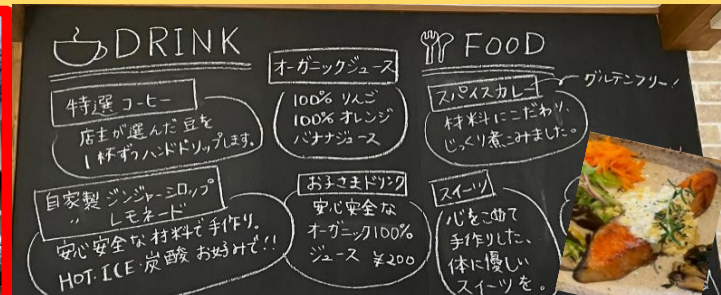 DRINK
特選コーヒー
店主が選んだ豆を
1杯ずつハンドドリップします。
自家製 ジンジャーシロップ
〃 レモネード
安心安全な材料で手作り。
HOT・ICE・炭酸 お好みで!!
オーガニックジュース
100% りんご
100% オレンジ
バナナジュース
お子さまドリンク
安心安全な
オーガニック100%
ジュース ¥200
FOOD
スパイスカレー
グルテンフリー!
材料にこだわり、
じっくり煮こみました。
スイーツ
心をこめて
手作りした、
体に優しい
スイーツを。